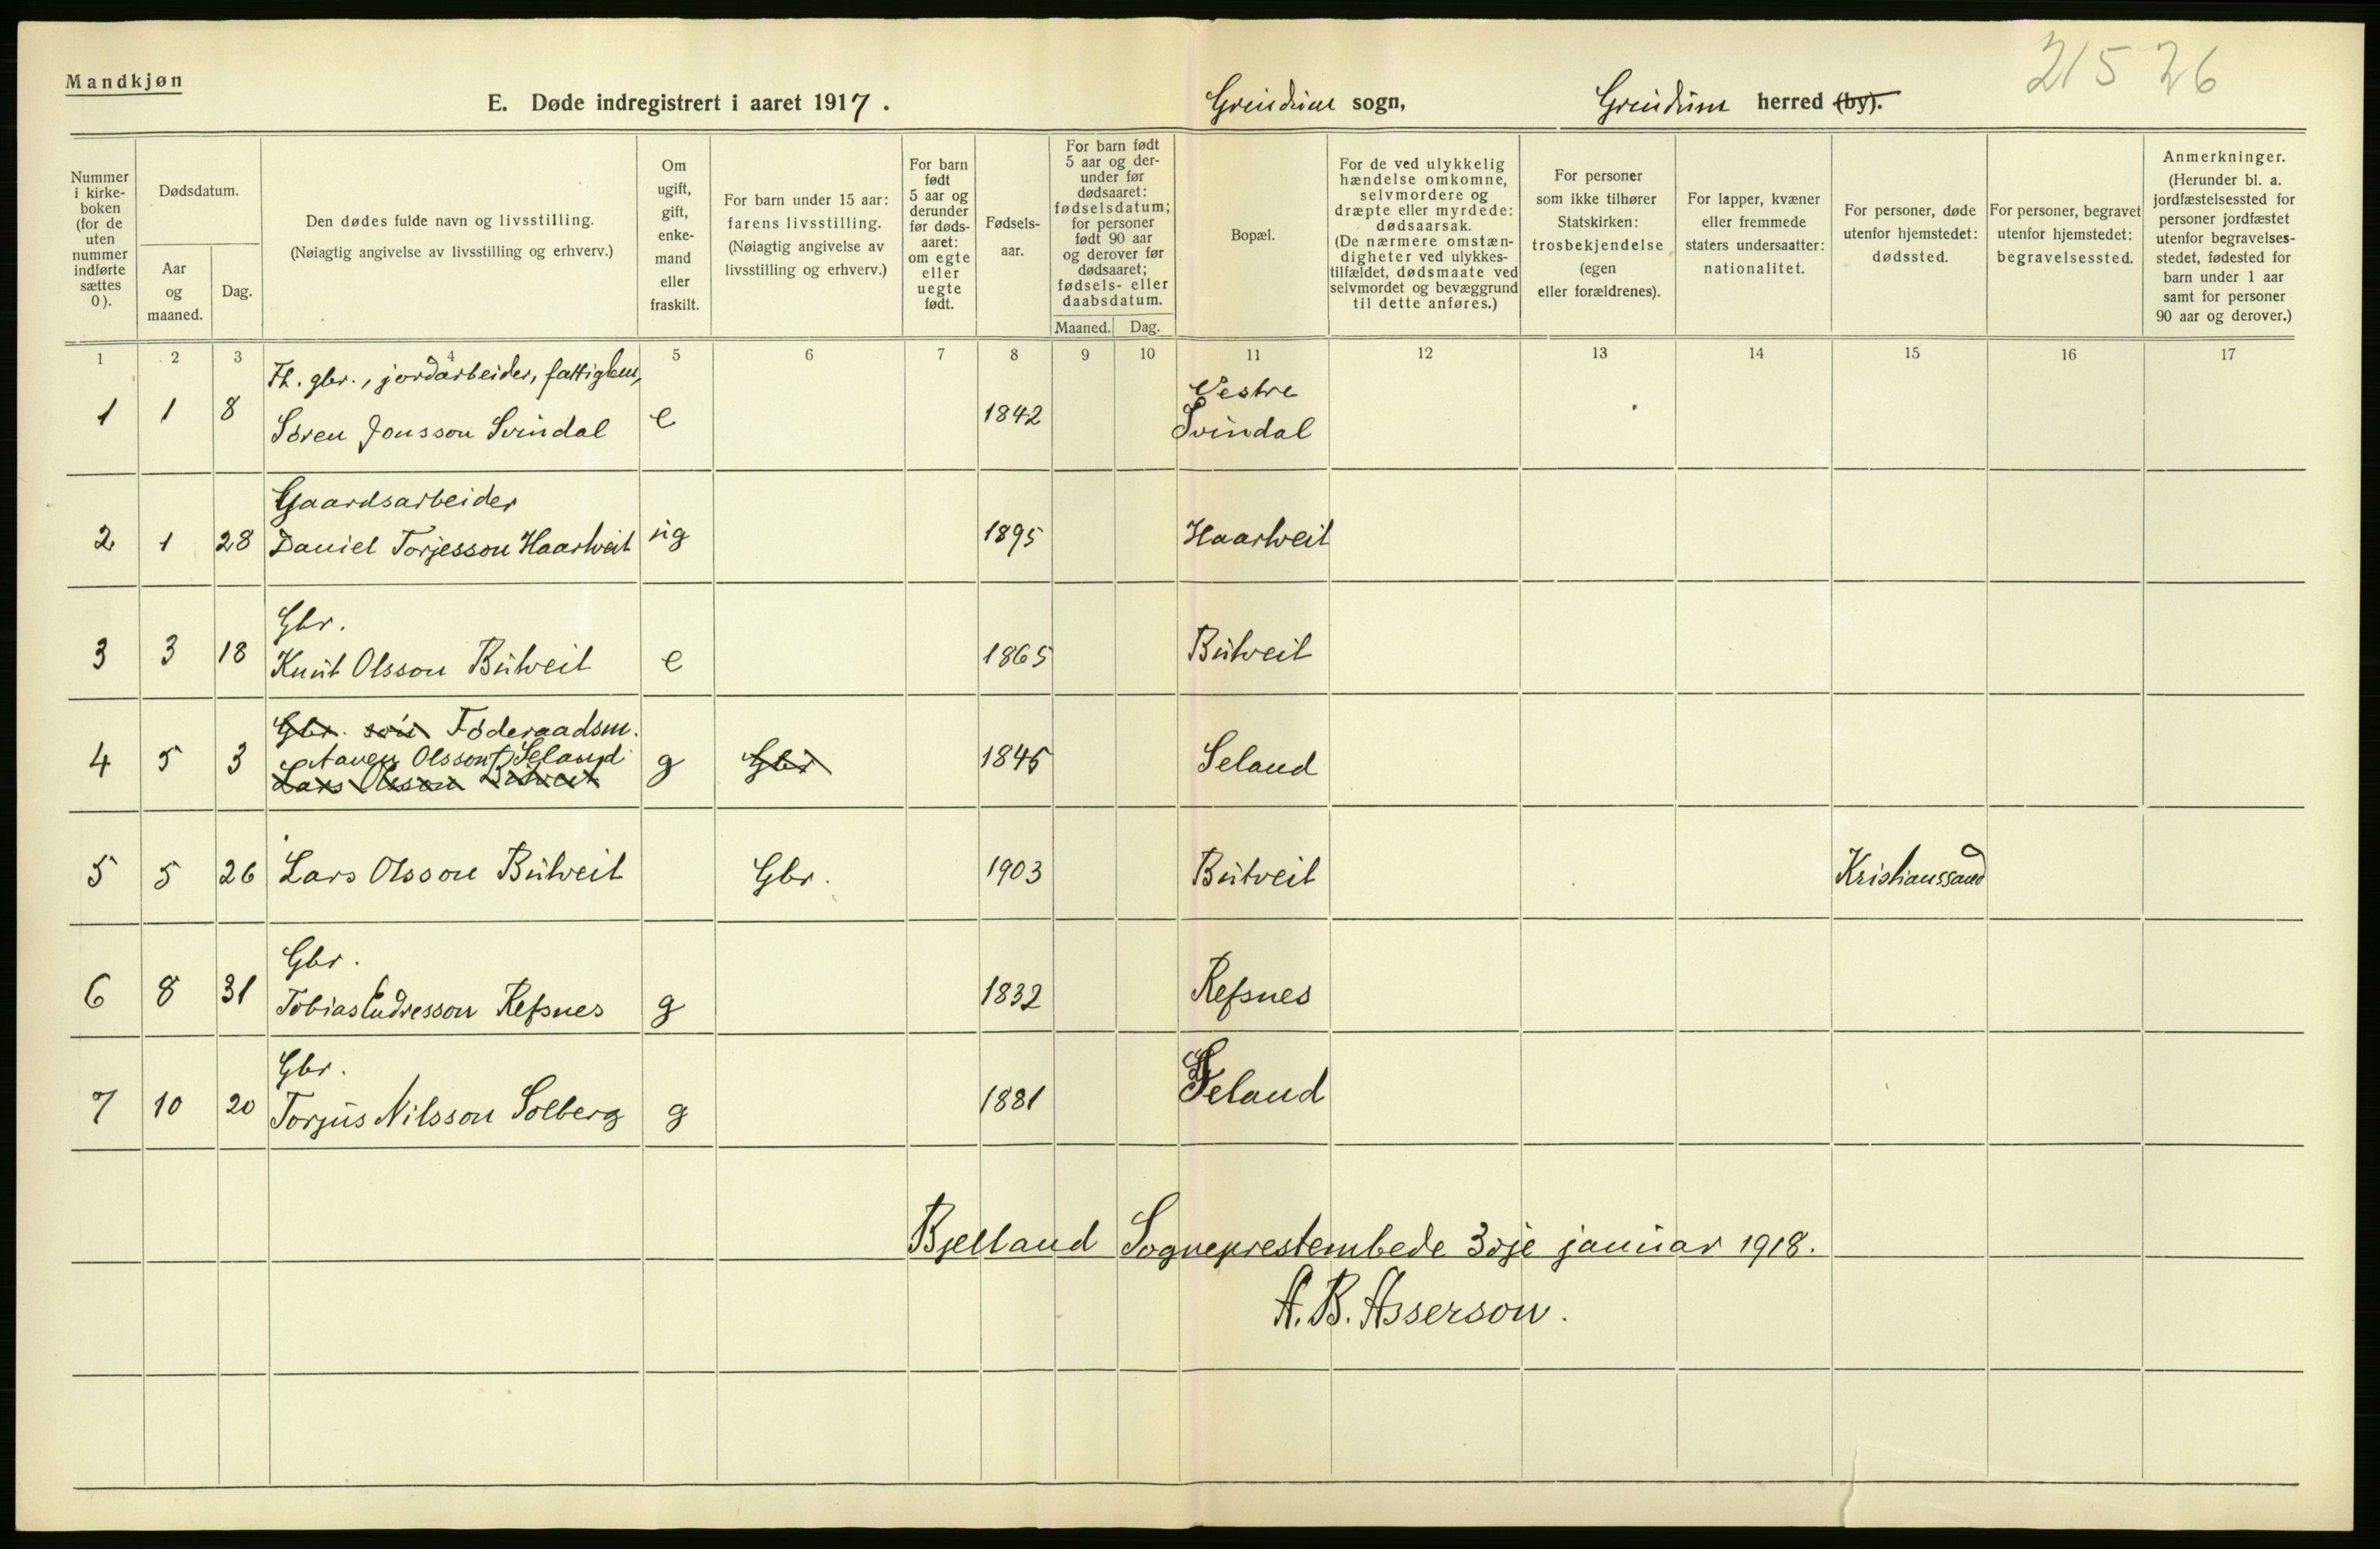 Mandkjøn
E. Døde indregistrert i aaret 1917. Grindum sogn, Grindum herred (by).
21526
Nummer i kirkeboken (for de uten nummer indførte sættes 0).
Dødsdatum.
Aar og maaned.
Dag.
Den dødes fulde navn og livsstilling.
(Nøiagtig angivelse av livsstilling og erhverv.)
Om ugift, gift, enkemand eller fraskilt.
For barn under 15 aar: farens livsstilling.
(Nøiagtig angivelse av livsstilling og erhverv.)
For barn født 5 aar og derunder før dødsaaret: om egte eller uegte født.
Fødselsaar.
For barn født 5 aar og derunder før dødsaaret: fødselsdatum; for personer født 90 aar og derover før dødsaaret; fødsels- eller daabsdatum.
Maaned. Dag.
Bopæl.
For de ved ulykkelig hændelse omkomne, selvmordere og dræpte eller myrdede: dødsaarsak.
(De nærmere omstændigheter ved ulykkestilfældet, dødsmaate ved selvmordet og bevæggrund til dette anføres.)
For personer som ikke tilhører Statskirken: trosbekjendelse (egen eller forældrenes).
For lapper, kvæner eller fremmede staters undersaatter: nationalitet.
For personer, døde utenfor hjemstedet: dødssted.
For personer, begravet utenfor hjemstedet: begravelsessted.
Anmerkninger.
(Herunder bl. a. jordfæstelsessted for personer jordfæstet utenfor begravelsesstedet, fødested for barn under 1 aar samt for personer 90 aar og derover.)
1 2 3 4 5 6 7 8 9 10 11 12 13 14 15 16 17
Fh. gbr., jordarbeider, fattiglem, Vestre
1 1 8 Søren Jonsson Svindal e 1842 Svindal
Gaardsarbeider
2 1 28 Daniel Torjesson Haartveit ug 1895 Haartveit
Gbr.
3 3 18 Knut Olsson Butveit e 1865 Butveit
Gbr. søn Føderaadsm.
4 5 3 Aanen Olsson Seland g Gbr 1845 Seland
Lars Olsson Butveit
5 5 26 Lars Olsson Butveit Gbr. 1903 Butveit Kristianssand
Gbr.
6 8 31 Tobias Endresson Refsnes g 1832 Refsnes
Gbr.
7 10 20 Torjus Nilsson Solberg g 1881 Seland
Bjelland Sogneprestembede 3dje januar 1918.
A. B. Asserson.